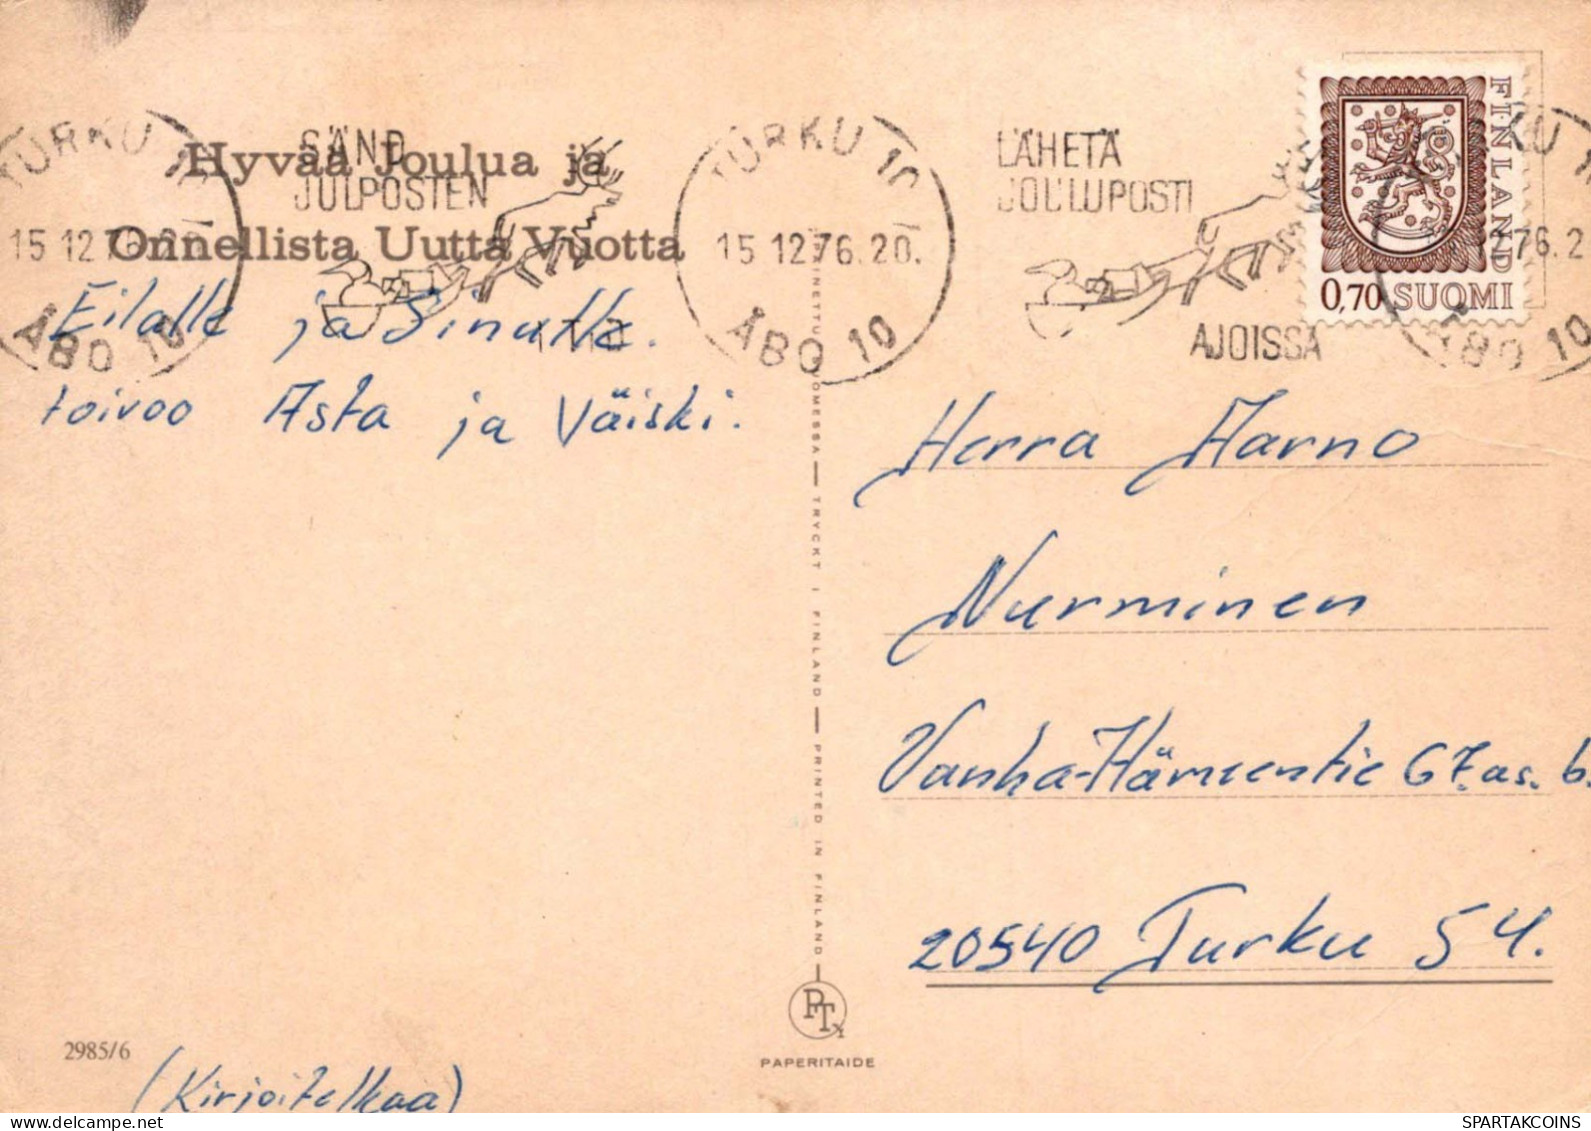 Hyvää Joulua ja
Onnellista Uutta Vuotta
Eilalle ja Sinulle.
toivoo Asta ja Väiski.
(Kirjoitelkaa)
2985/6
TURKU 10
15 12 76. 20.
ÅBO 10
SÄND
JULPOSTEN
TURKU 10
15 12 76. 20.
ÅBO 10
LÄHETÄ
JOULUPOSTI
AJOISSA
FINLAND
0,70 SUOMI
KU 10
76. 2
ÅBO 10
Herra Aarno
Nurminen
Vanha-Hämeentie 67. as. 6.
20540 Turku 54.
TRYCKT I FINLAND — PRINTED IN FINLAND
PTy
PAPERITAIDE
SPARTAKCOINS.COM